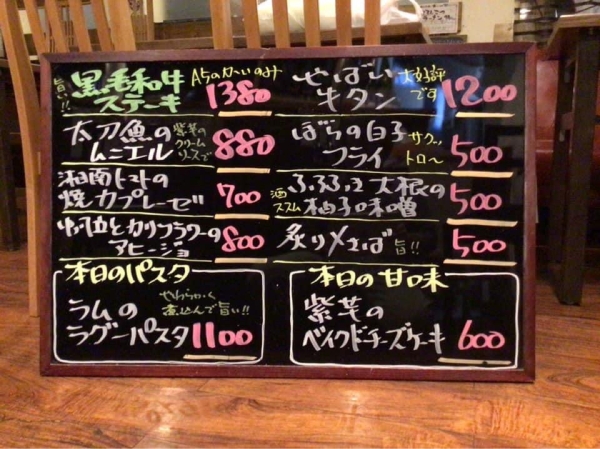 旨い!!
黒毛和牛
ステーキ
A5のかいのみ
1380
太刀魚の
ムニエル
紫芋の
クリーム
ソースで
880
湘南トマトの
焼カプレーゼ
700
帆立とカリフラワーの
アヒージョ
800
本日のパスタ
ラムの
ラグーパスタ
やわらかく
煮込んで旨い!!
1100
やばい
牛タン
大好評
です
1200
ぼらの白子
フライ
サクッ
トロ〜
500
ふろふき大根の
柚子味噌
酒
ススム
500
炙り〆さば
旨!!
500
本日の甘味
紫芋の
ベイクドチーズケーキ
600